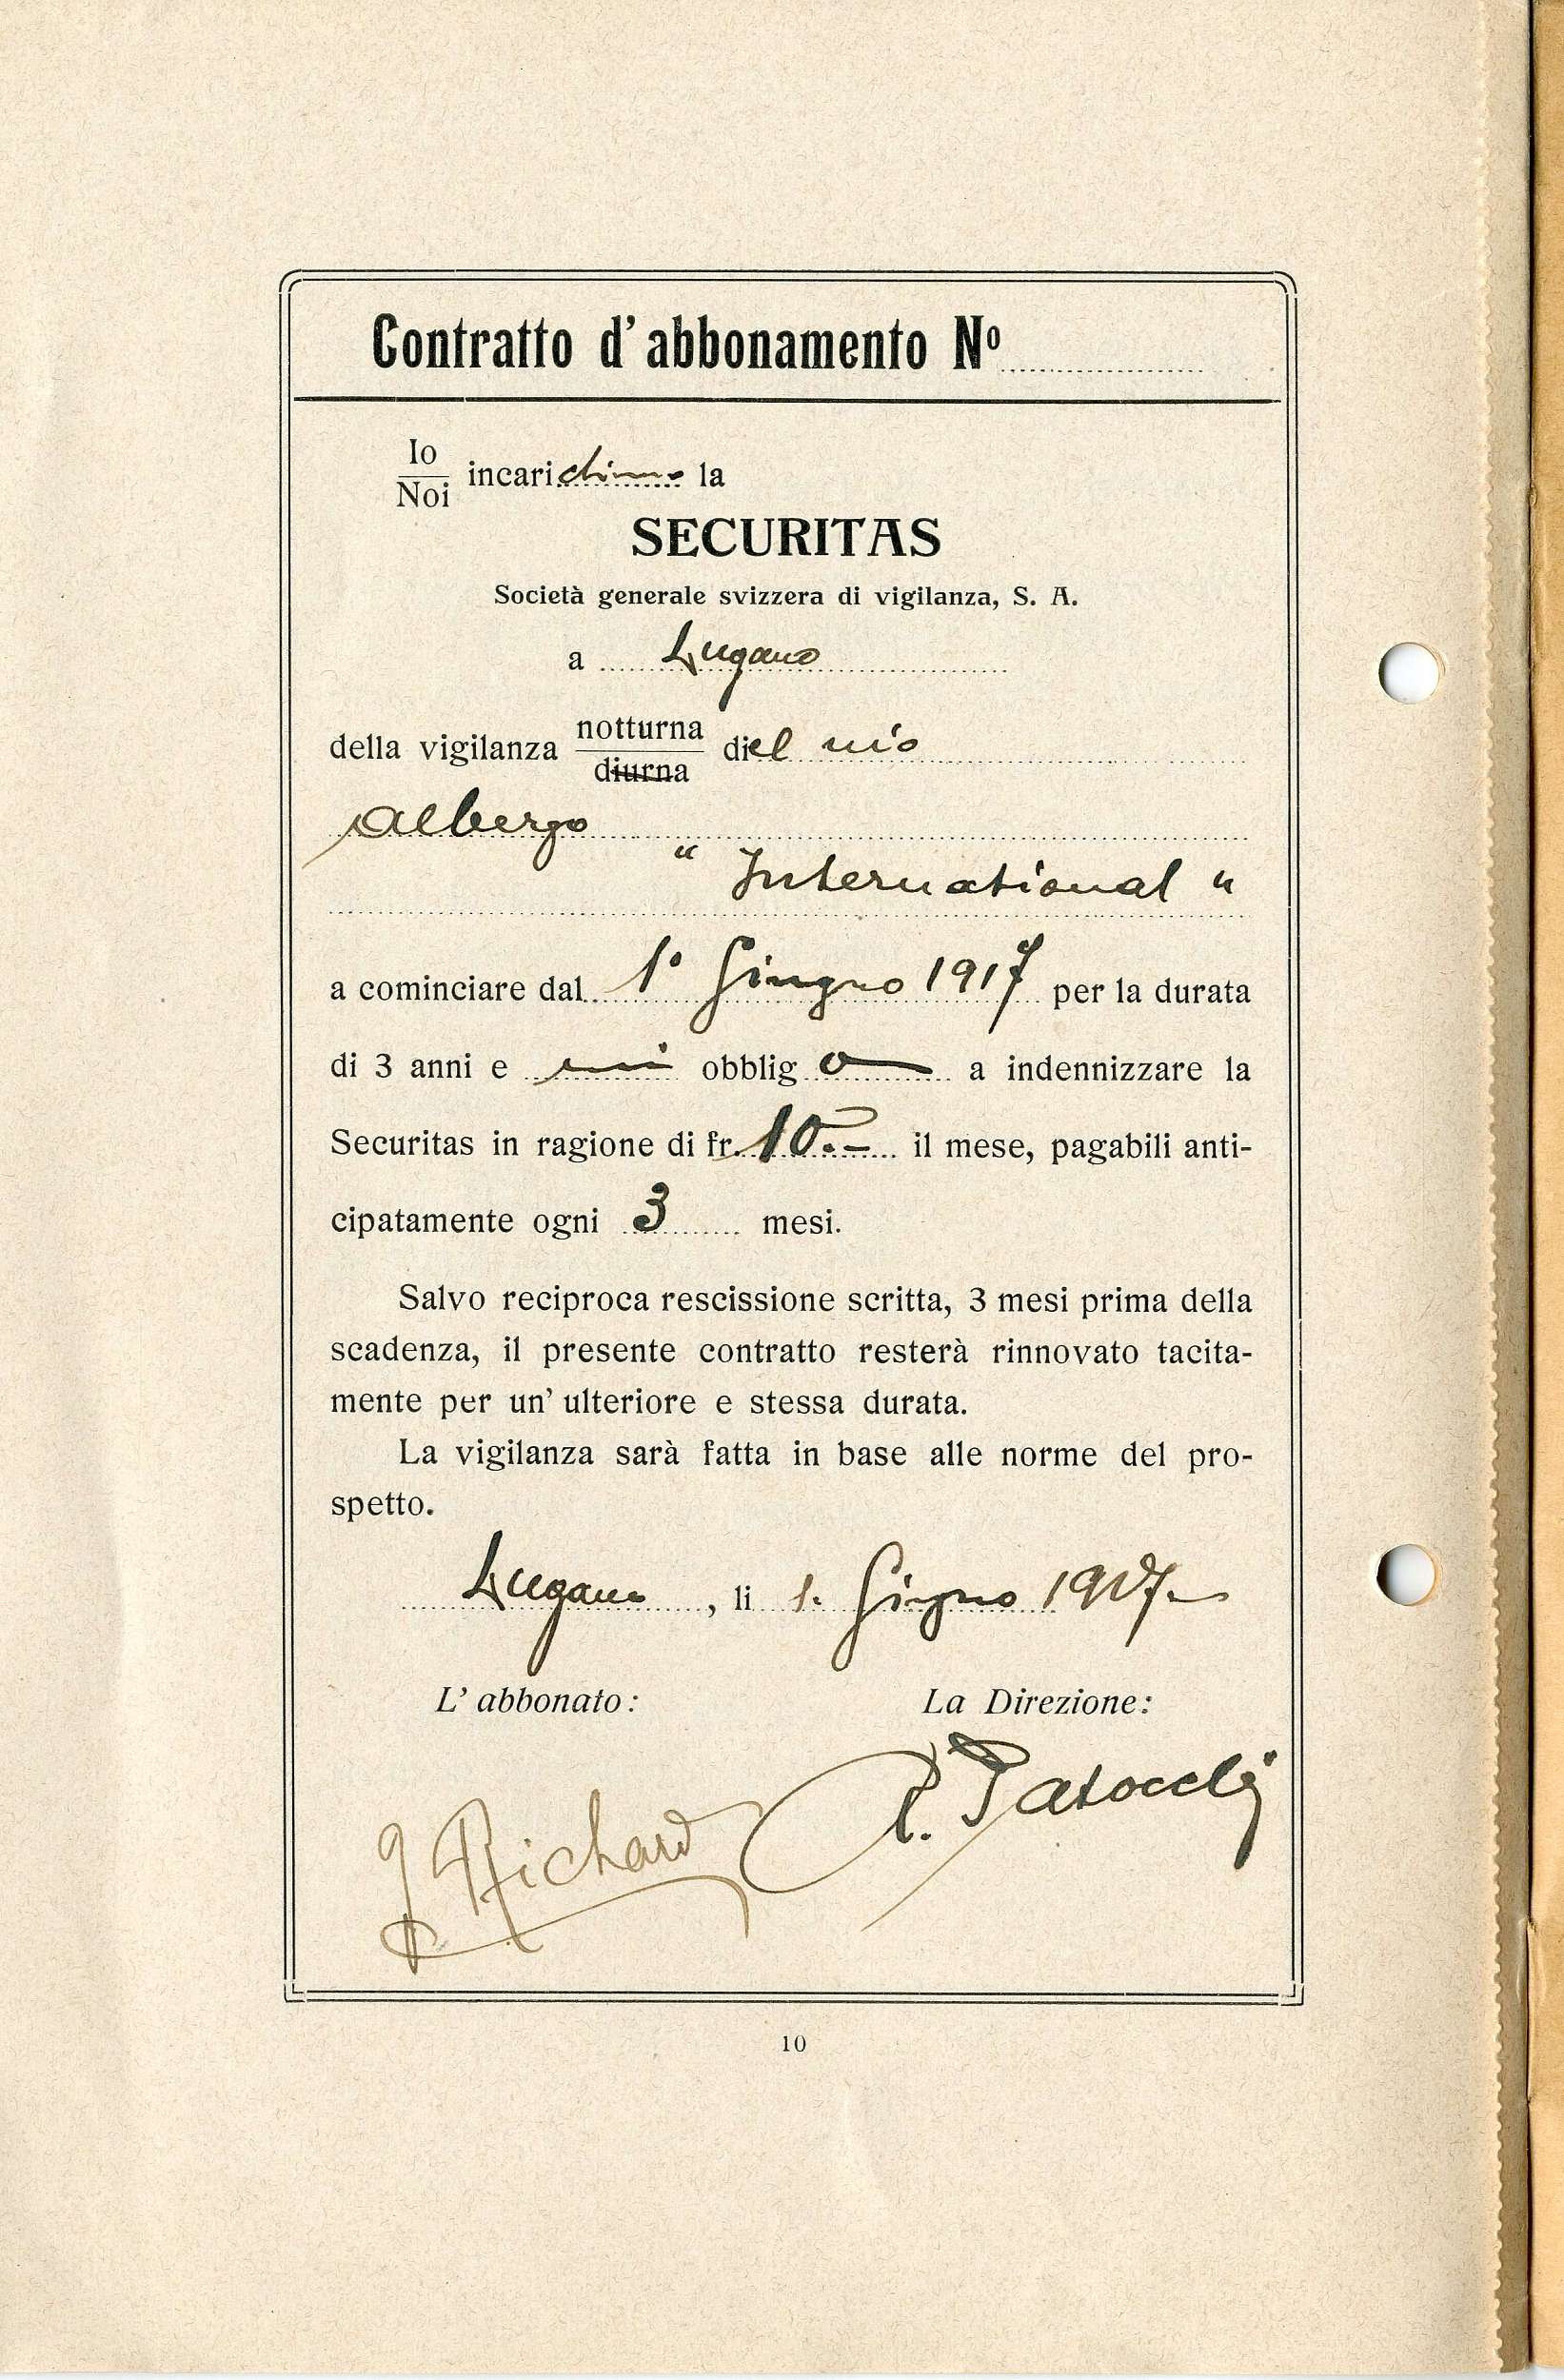 Contratto d'abbonamento Nº
Io
Noi incarichiamo la
SECURITAS
Società generale svizzera di vigilanza, S. A.
a Lugano
della vigilanza notturna
diurna del mio
Albergo
" International "
a cominciare dal 1º Giugno 1917 per la durata
di 3 anni e mi obbligo a indennizzare la
Securitas in ragione di fr. 10.- il mese, pagabili anti-
cipatamente ogni 3 mesi.
Salvo reciproca rescissione scritta, 3 mesi prima della
scadenza, il presente contratto resterà rinnovato tacita-
mente per un' ulteriore e stessa durata.
La vigilanza sarà fatta in base alle norme del pro-
spetto.
Lugano, li 1. Giugno 1917.-
L' abbonato: La Direzione:
J Richard P. Patocchi
10